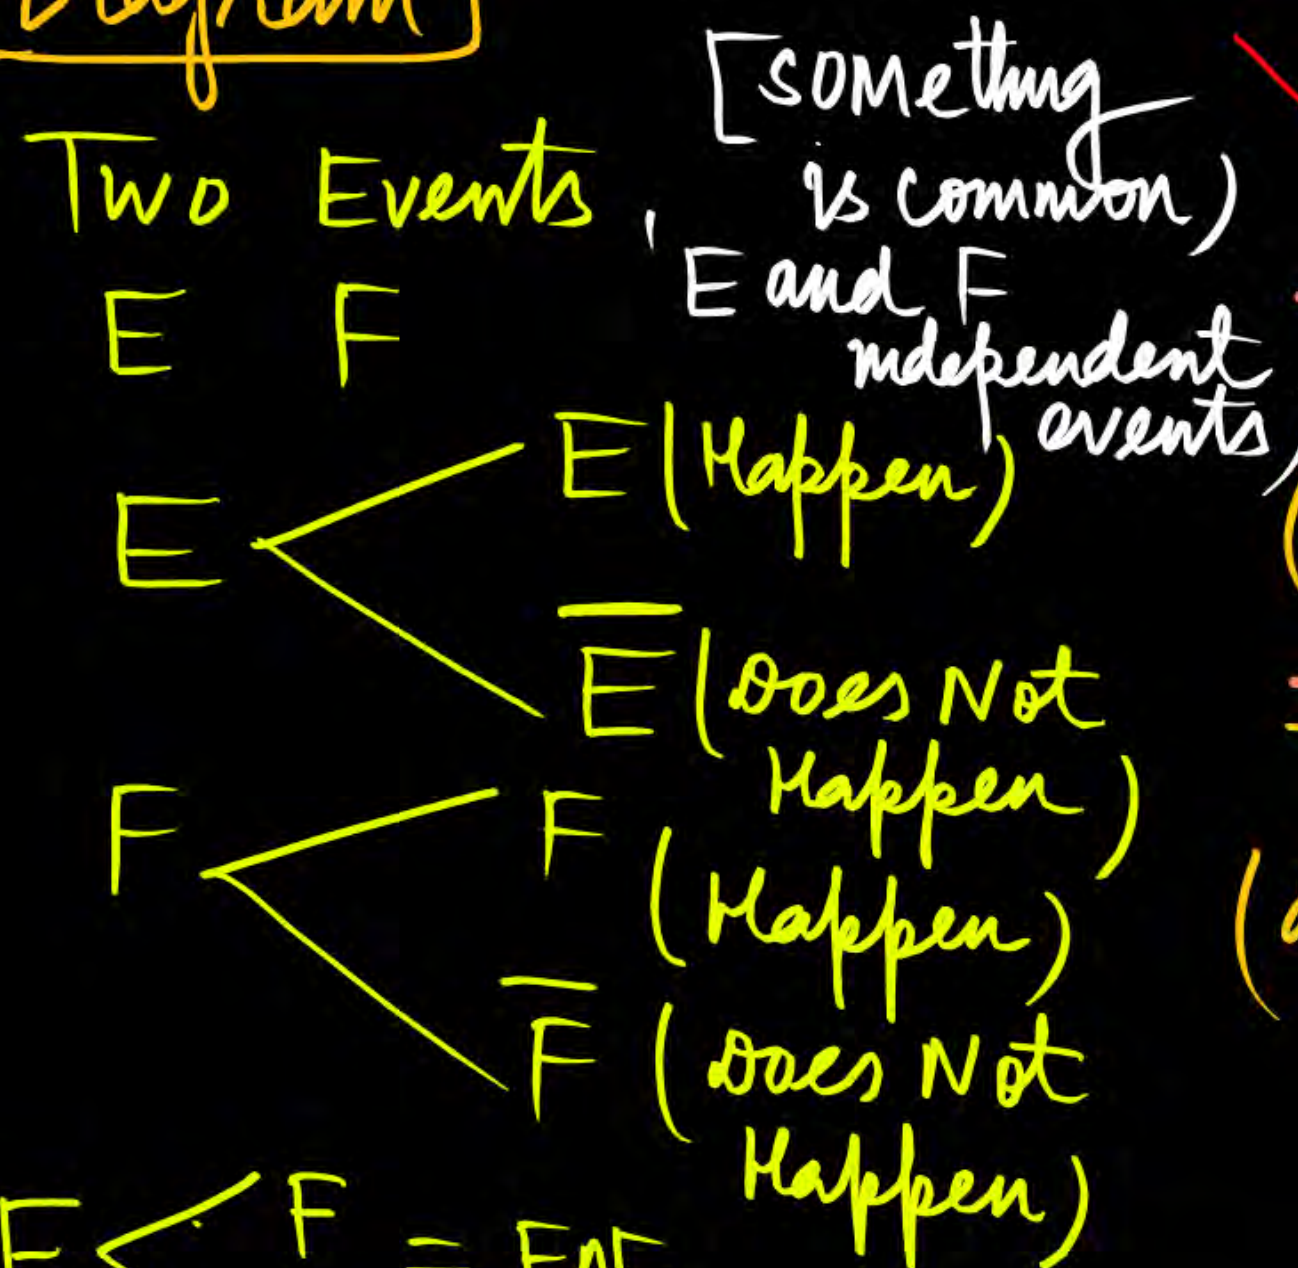 Diagram
Two Events,
[something
is common)
E and F
independent
events)
E F
E E (Happen)
E̅ (Does Not
Happen)
F F
(Happen)
F̅ (Does Not
Happen)
E F = E∩F